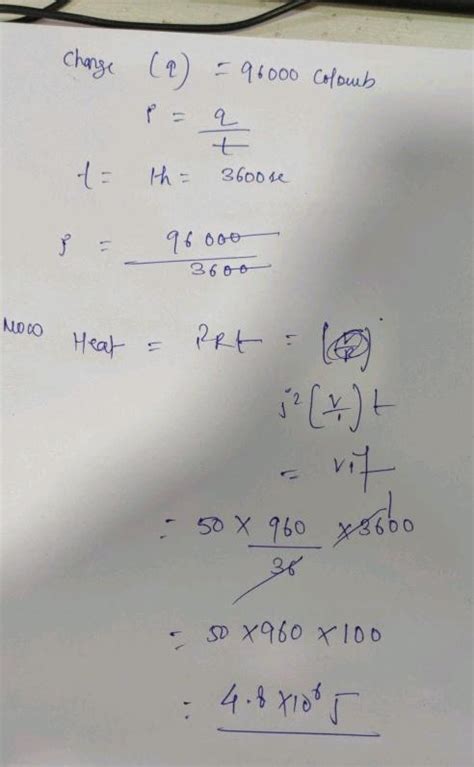 Charge (q) = 96000 Coloumb
i = q / t
t = 1h = 3600 se
i = 96000 / 3600
Now Heat = i²Rt =
i² (V/i) t
= Vit
= 50 × 960 / 36 × 3600
= 50 × 960 × 100
= 4.8 × 10⁶ J